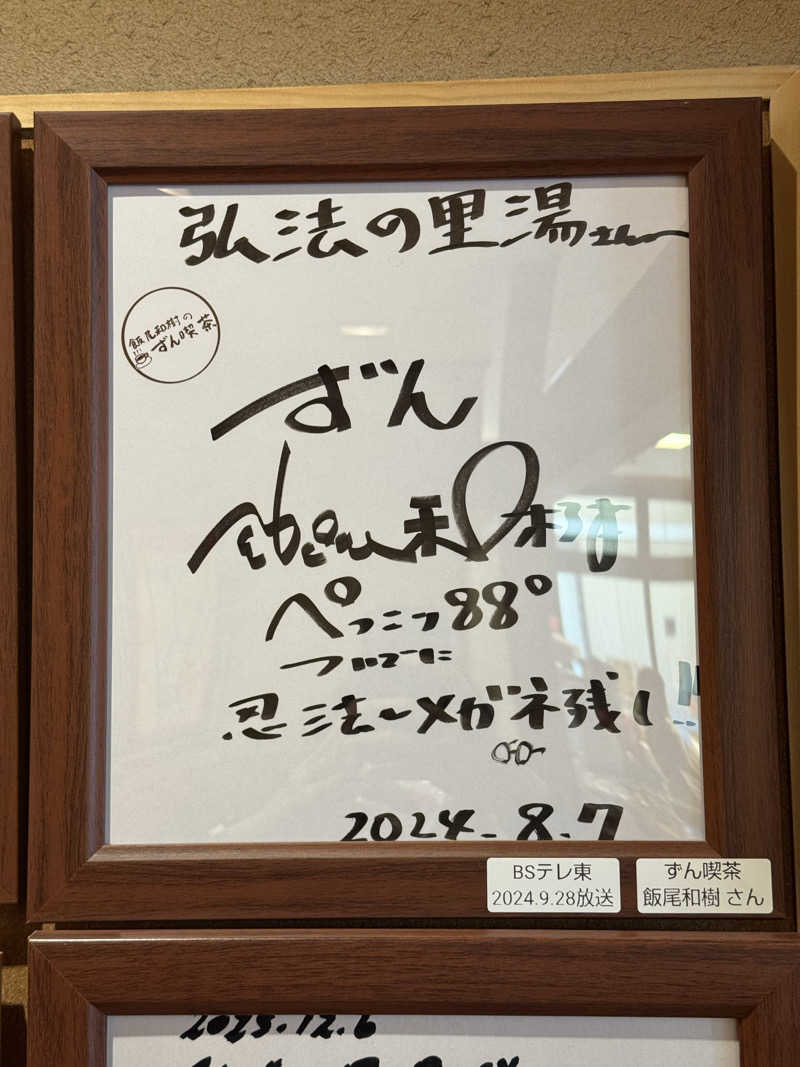 弘法の里湯さん
飯尾和樹の
ずん喫茶
ずん
飯尾和樹
ペっこつ88°
ついでーに
忍法〜メガネ残し!!
2024.8.7
BSテレ東
2024.9.28放送
ずん喫茶
飯尾和樹 さん
2023.12.6